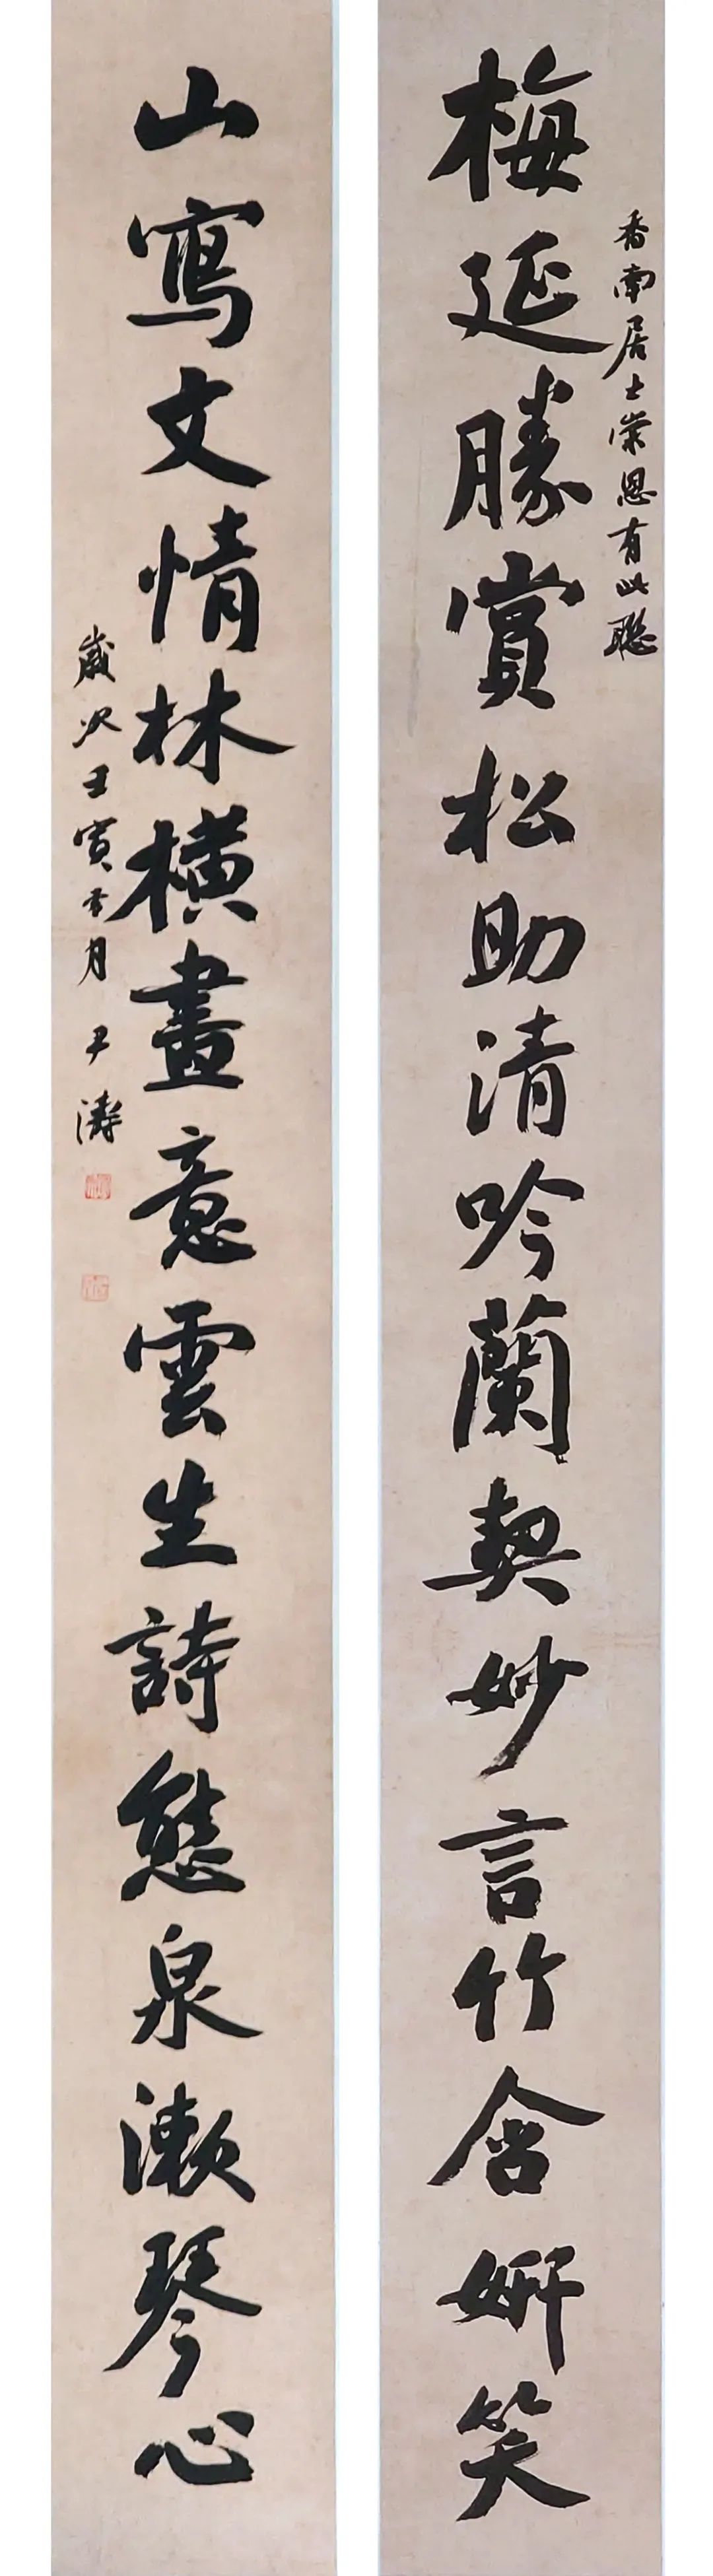 香南居士崇恩有此聯
梅延勝賞松助清吟蘭契妙言竹含妍笑
山寫文情林橫畫意雲生詩態泉漱琴心
歲次壬寅雪月 尹濤